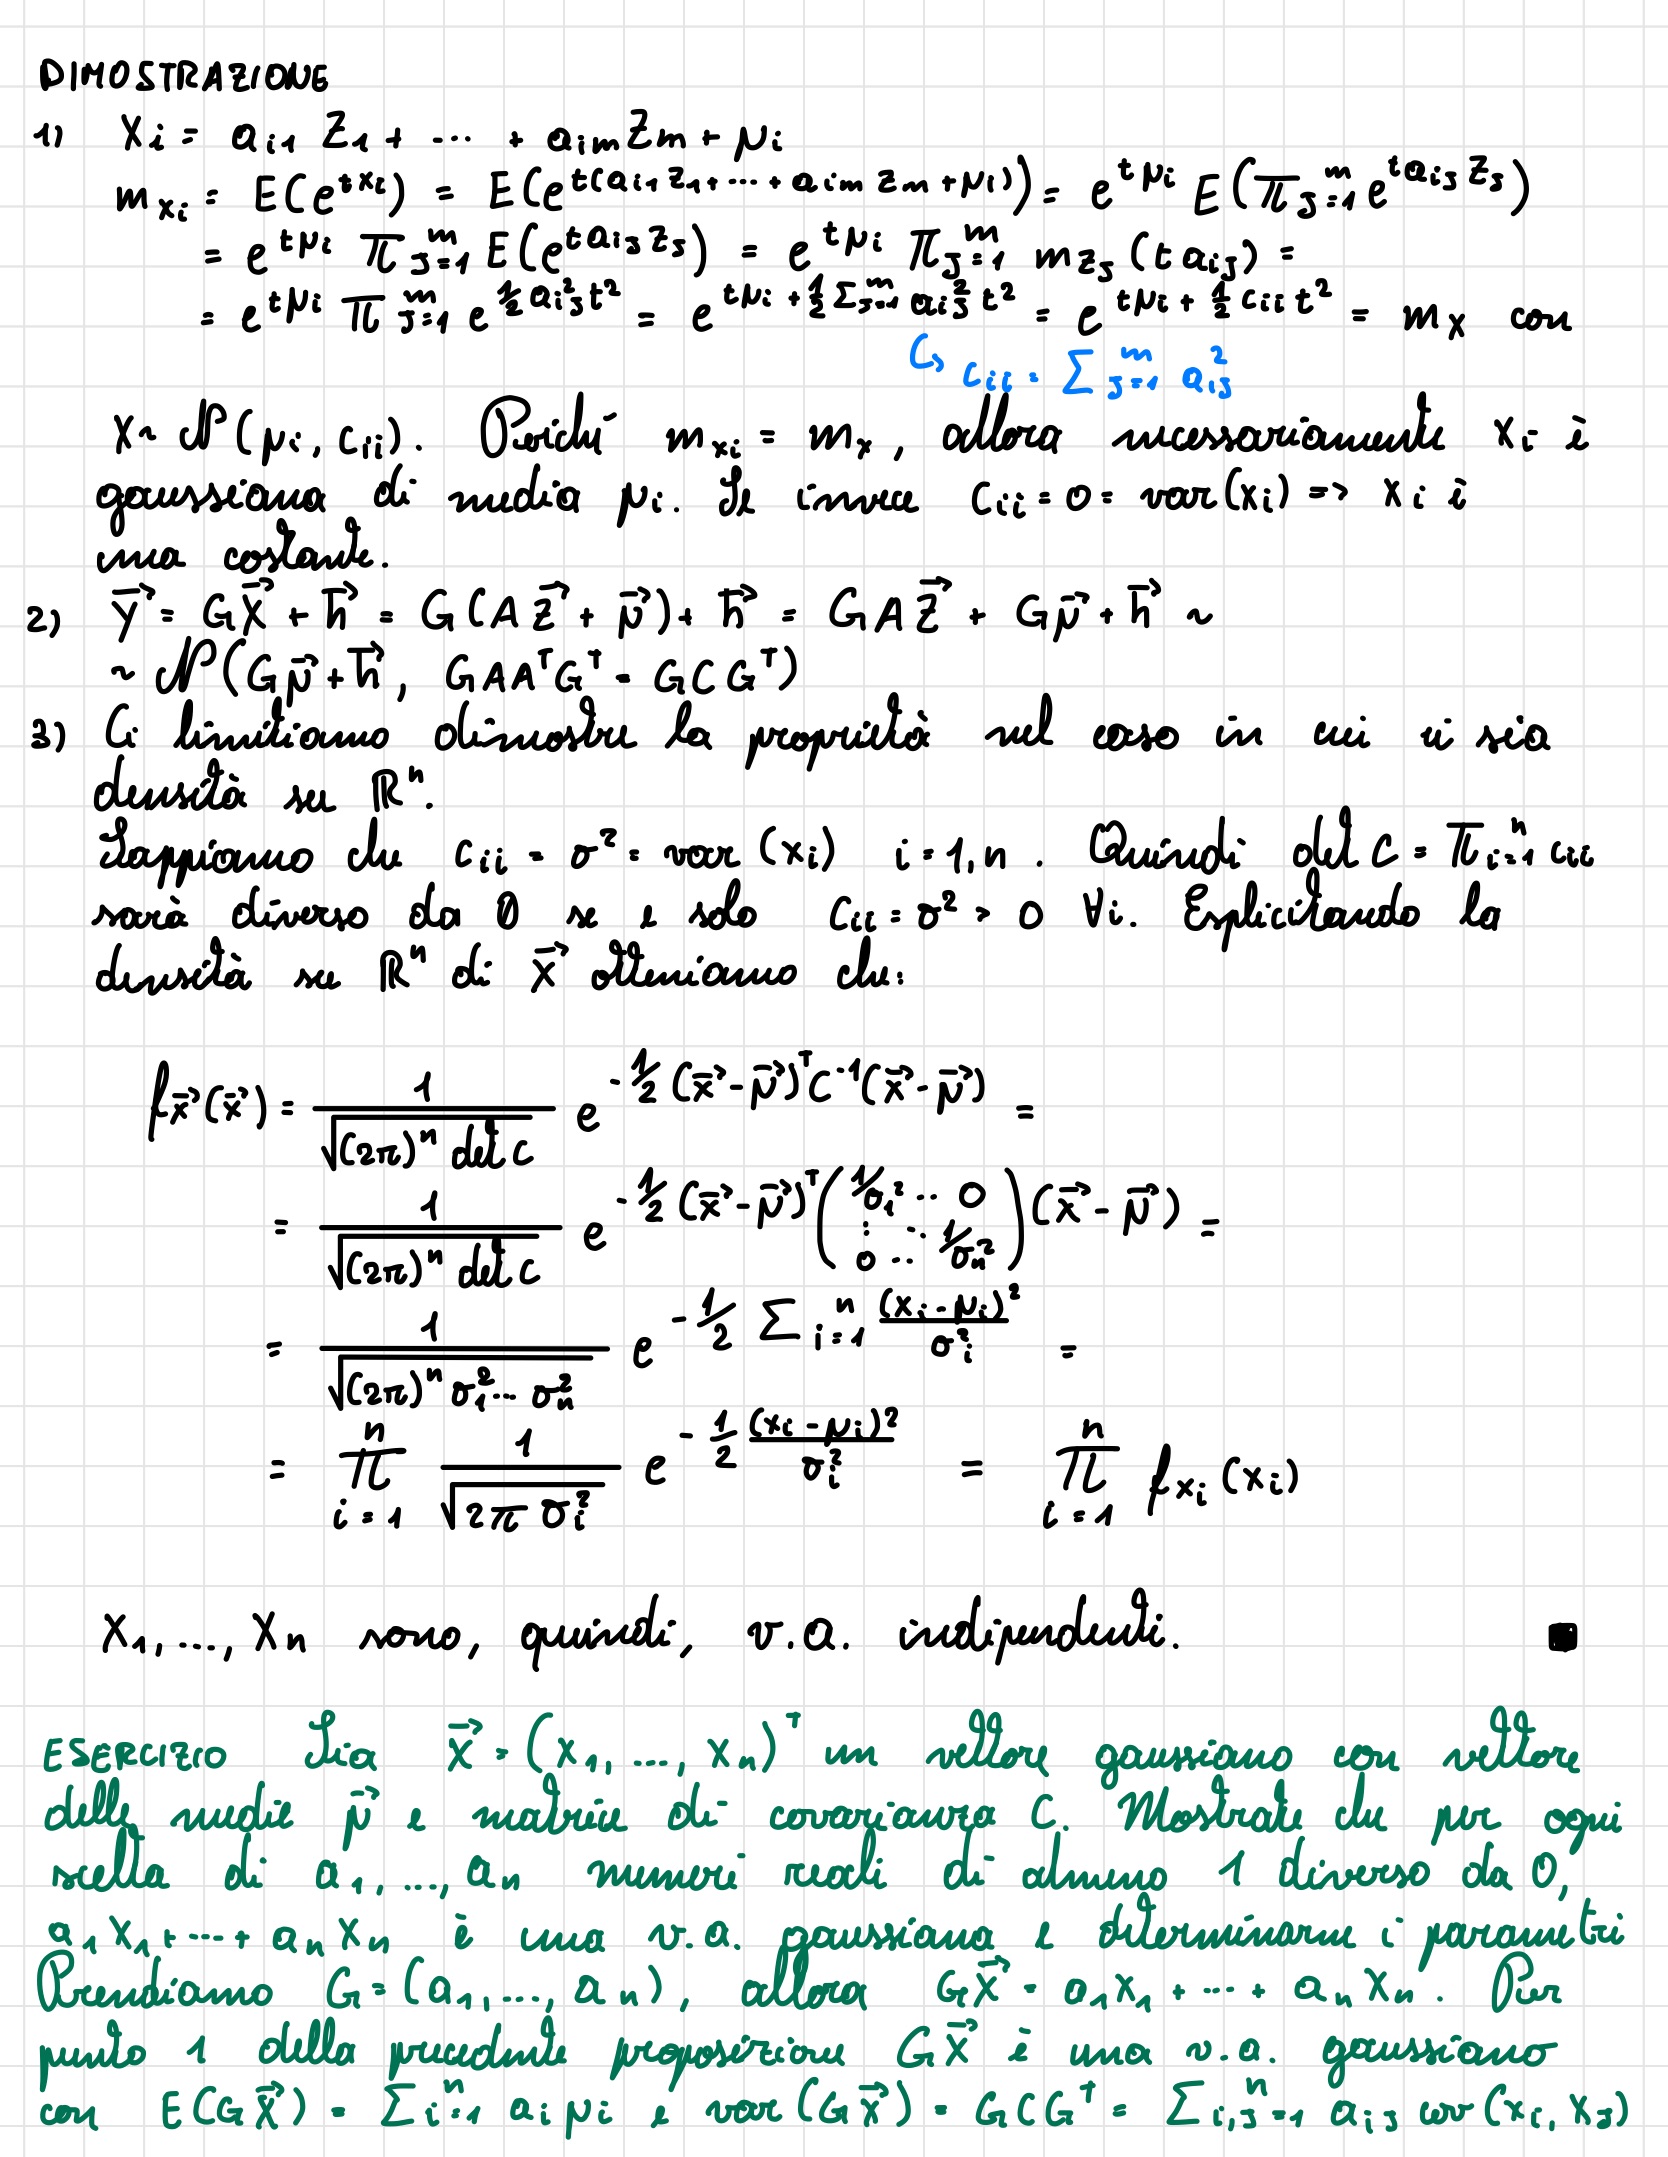 DIMOSTRAZIONE
1) Xi = ai1 Z1 + ... + aim Zm + μi
m_Xi = E(e^{tXi}) = E(e^{t(ai1 Z1 + ... + aim Zm + μi)}) = e^{tμi} E(π_{j=1}^m e^{t aij Zj})
= e^{tμi} π_{j=1}^m E(e^{t aij Zj}) = e^{tμi} π_{j=1}^m m_{Zj}(t aij) =
= e^{tμi} π_{j=1}^m e^{1/2 aij² t²} = e^{tμi + 1/2 Σ_{j=1}^m aij² t²} = e^{tμi + 1/2 cii t²} = m_X con
↳ cii = Σ_{j=1}^m aij²
X ~ N(μi, cii). Poiché m_Xi = m_X, allora necessariamente Xi è
gaussiana di media μi. Se invece cii = 0 = var(Xi) => Xi è
una costante.
2) Y⃗ = GX⃗ + h⃗ = G(AZ⃗ + μ⃗) + h⃗ = GAZ⃗ + Gμ⃗ + h⃗ ~
~ N(Gμ⃗ + h⃗, GAA^T G^T = GCG^T)
3) Ci limitiamo dimostre la proprietà nel caso in cui vi sia
densità su ℝ^n.
Sappiamo che cii = σ² = var(Xi) i = 1, n. Quindi det C = π_{i=1}^n cii
sarà diverso da 0 se e solo cii = σ² > 0 ∀i. Esplicitando la
densità su ℝ^n di X⃗ otteniamo che:
f_X⃗(x⃗) = 1/√((2π)^n det C) e^{-1/2 (x⃗ - μ⃗)^T C^{-1} (x⃗ - μ⃗)} =
= 1/√((2π)^n det C) e^{-1/2 (x⃗ - μ⃗)^T (1/σ1² ... 0 ⋮ ⋱ 0 ... 1/σn²) (x⃗ - μ⃗)} =
= 1/√((2π)^n σ1² ... σn²) e^{-1/2 Σ_{i=1}^n (xi - μi)²/σi²} =
= π_{i=1}^n 1/√(2π σi²) e^{-1/2 (xi - μi)²/σi²} = π_{i=1}^n f_Xi(xi)
X1, ..., Xn sono, quindi, v.a. indipendenti. ■
ESERCIZIO Sia X⃗ = (X1, ..., Xn)^T un vettore gaussiano con vettore
delle medie μ⃗ e matrice di covarianza C. Mostrate che per ogni
scelta di a1, ..., an numeri reali di almeno 1 diverso da 0,
a1 X1 + ... + an Xn è una v.a. gaussiana e determinarne i parametri
Prendiamo G = (a1, ..., an), allora GX⃗ = a1 X1 + ... + an Xn. Per
punto 1 della precedente proposizione GX⃗ è una v.a. gaussiano
con E(GX⃗) = Σ_{i=1}^n ai μi e var(GX⃗) = GCG^T = Σ_{i,j=1}^n aij cov(Xi, Xj)